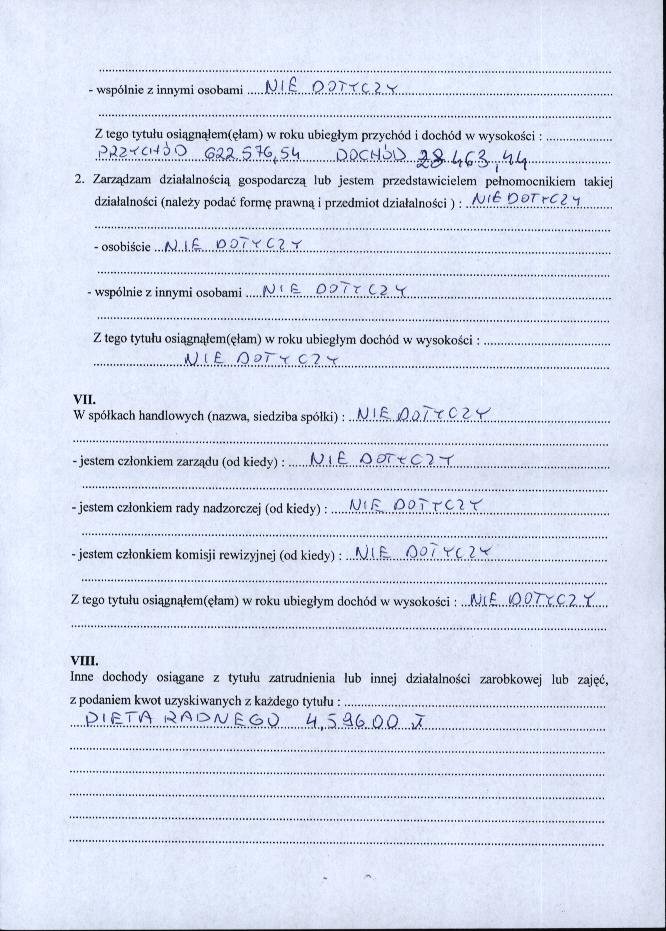 - wspólnie z innymi osobami ..... NIE DOTYCZY
Z tego tytułu osiągnąłem(ęłam) w roku ubiegłym przychód i dochód w wysokości : ......................
PRZYCHÓD 622.576,54 DOCHÓD 28.463,44
2. Zarządzam działalnością gospodarczą lub jestem przedstawicielem pełnomocnikiem takiej
działalności (należy podać formę prawną i przedmiot działalności ) : NIE DOTYCZY
- osobiście ... NIE DOTYCZY
- wspólnie z innymi osobami ..... NIE DOTYCZY
Z tego tytułu osiągnąłem(ęłam) w roku ubiegłym dochód w wysokości : ......................
NIE DOTYCZY
VII.
W spółkach handlowych (nazwa, siedziba spółki) : ... NIE DOTYCZY
- jestem członkiem zarządu (od kiedy) : ...... NIE DOTYCZY
- jestem członkiem rady nadzorczej (od kiedy) : ..... NIE DOTYCZY
- jestem członkiem komisji rewizyjnej (od kiedy) : ... NIE DOTYCZY
Z tego tytułu osiągnąłem(ęłam) w roku ubiegłym dochód w wysokości : ... NIE DOTYCZY
VIII.
Inne dochody osiągane z tytułu zatrudnienia lub innej działalności zarobkowej lub zajęć,
z podaniem kwot uzyskiwanych z każdego tytułu : ......................
DIETA RADNEGO 4,596.00 zł